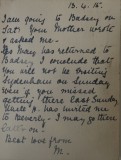 13.4.15.
I am going to Badsey on
Sat: Your Mother wrote
& asked me.
As Mary has returned to
Badsey, I conclude that
you will not be visiting
Sydenham on Sunday
even if you missed
getting there last Sunday.
Uncle J. has invited me
to Beverly - I may go then
Best love from
M.